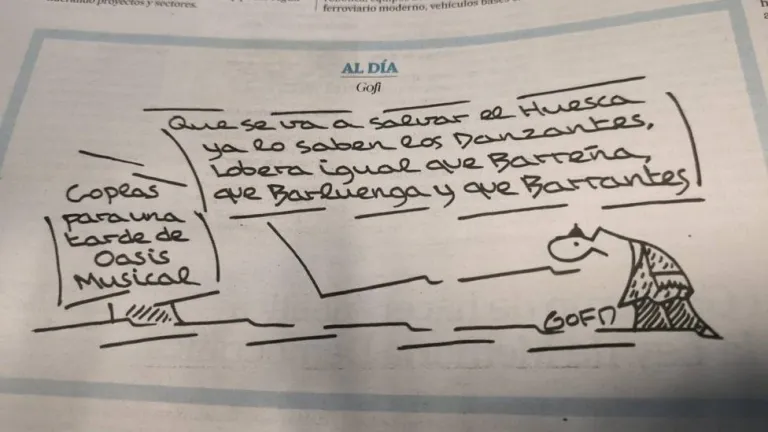 proyectos y sectores.
ferroviario moderno, vehículos
AL DÍA
Gofi
Que se va a salvar el Huesca
ya lo saben los Danzantes,
Lobera igual que Barreña,
que Barluenga y que Barrantes
Coplas
para una
tarde de
Oasis
Musical
GOFI